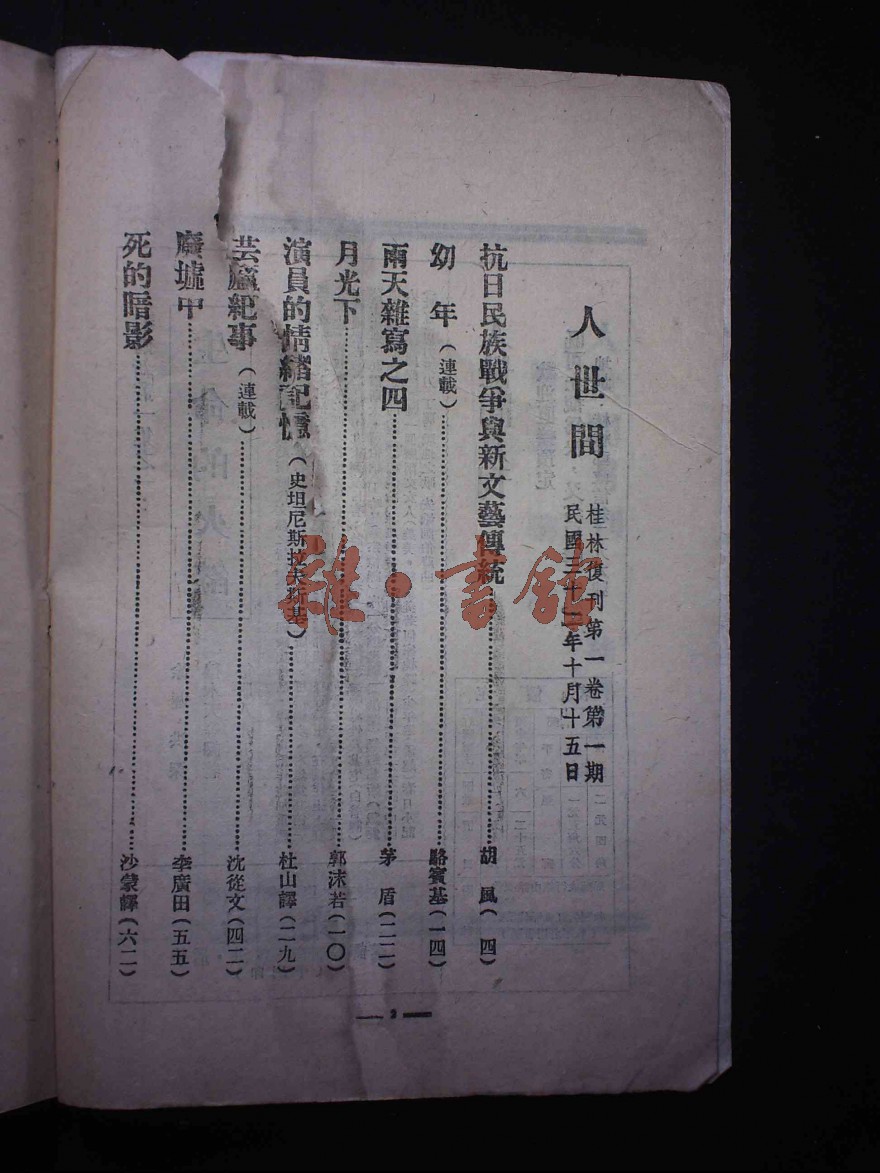 人世間
桂林復刊第一卷第一期
民國三十一年十月十五日
抗日民族戰爭與新文藝傳統……胡風(四)
幼年(連載)……駱賓基(一四)
雨天雜寫之四……茅盾(二二)
月光下……郭沫若(一〇)
演員的情緒記憶(史坦尼斯拉夫斯基)……杜山譯(二九)
芸廬紀事(連載)……沈從文(四二)
廢墟中……李廣田(五五)
死的暗影……沙蒙譯(六二)
— 3 —
雜·書館